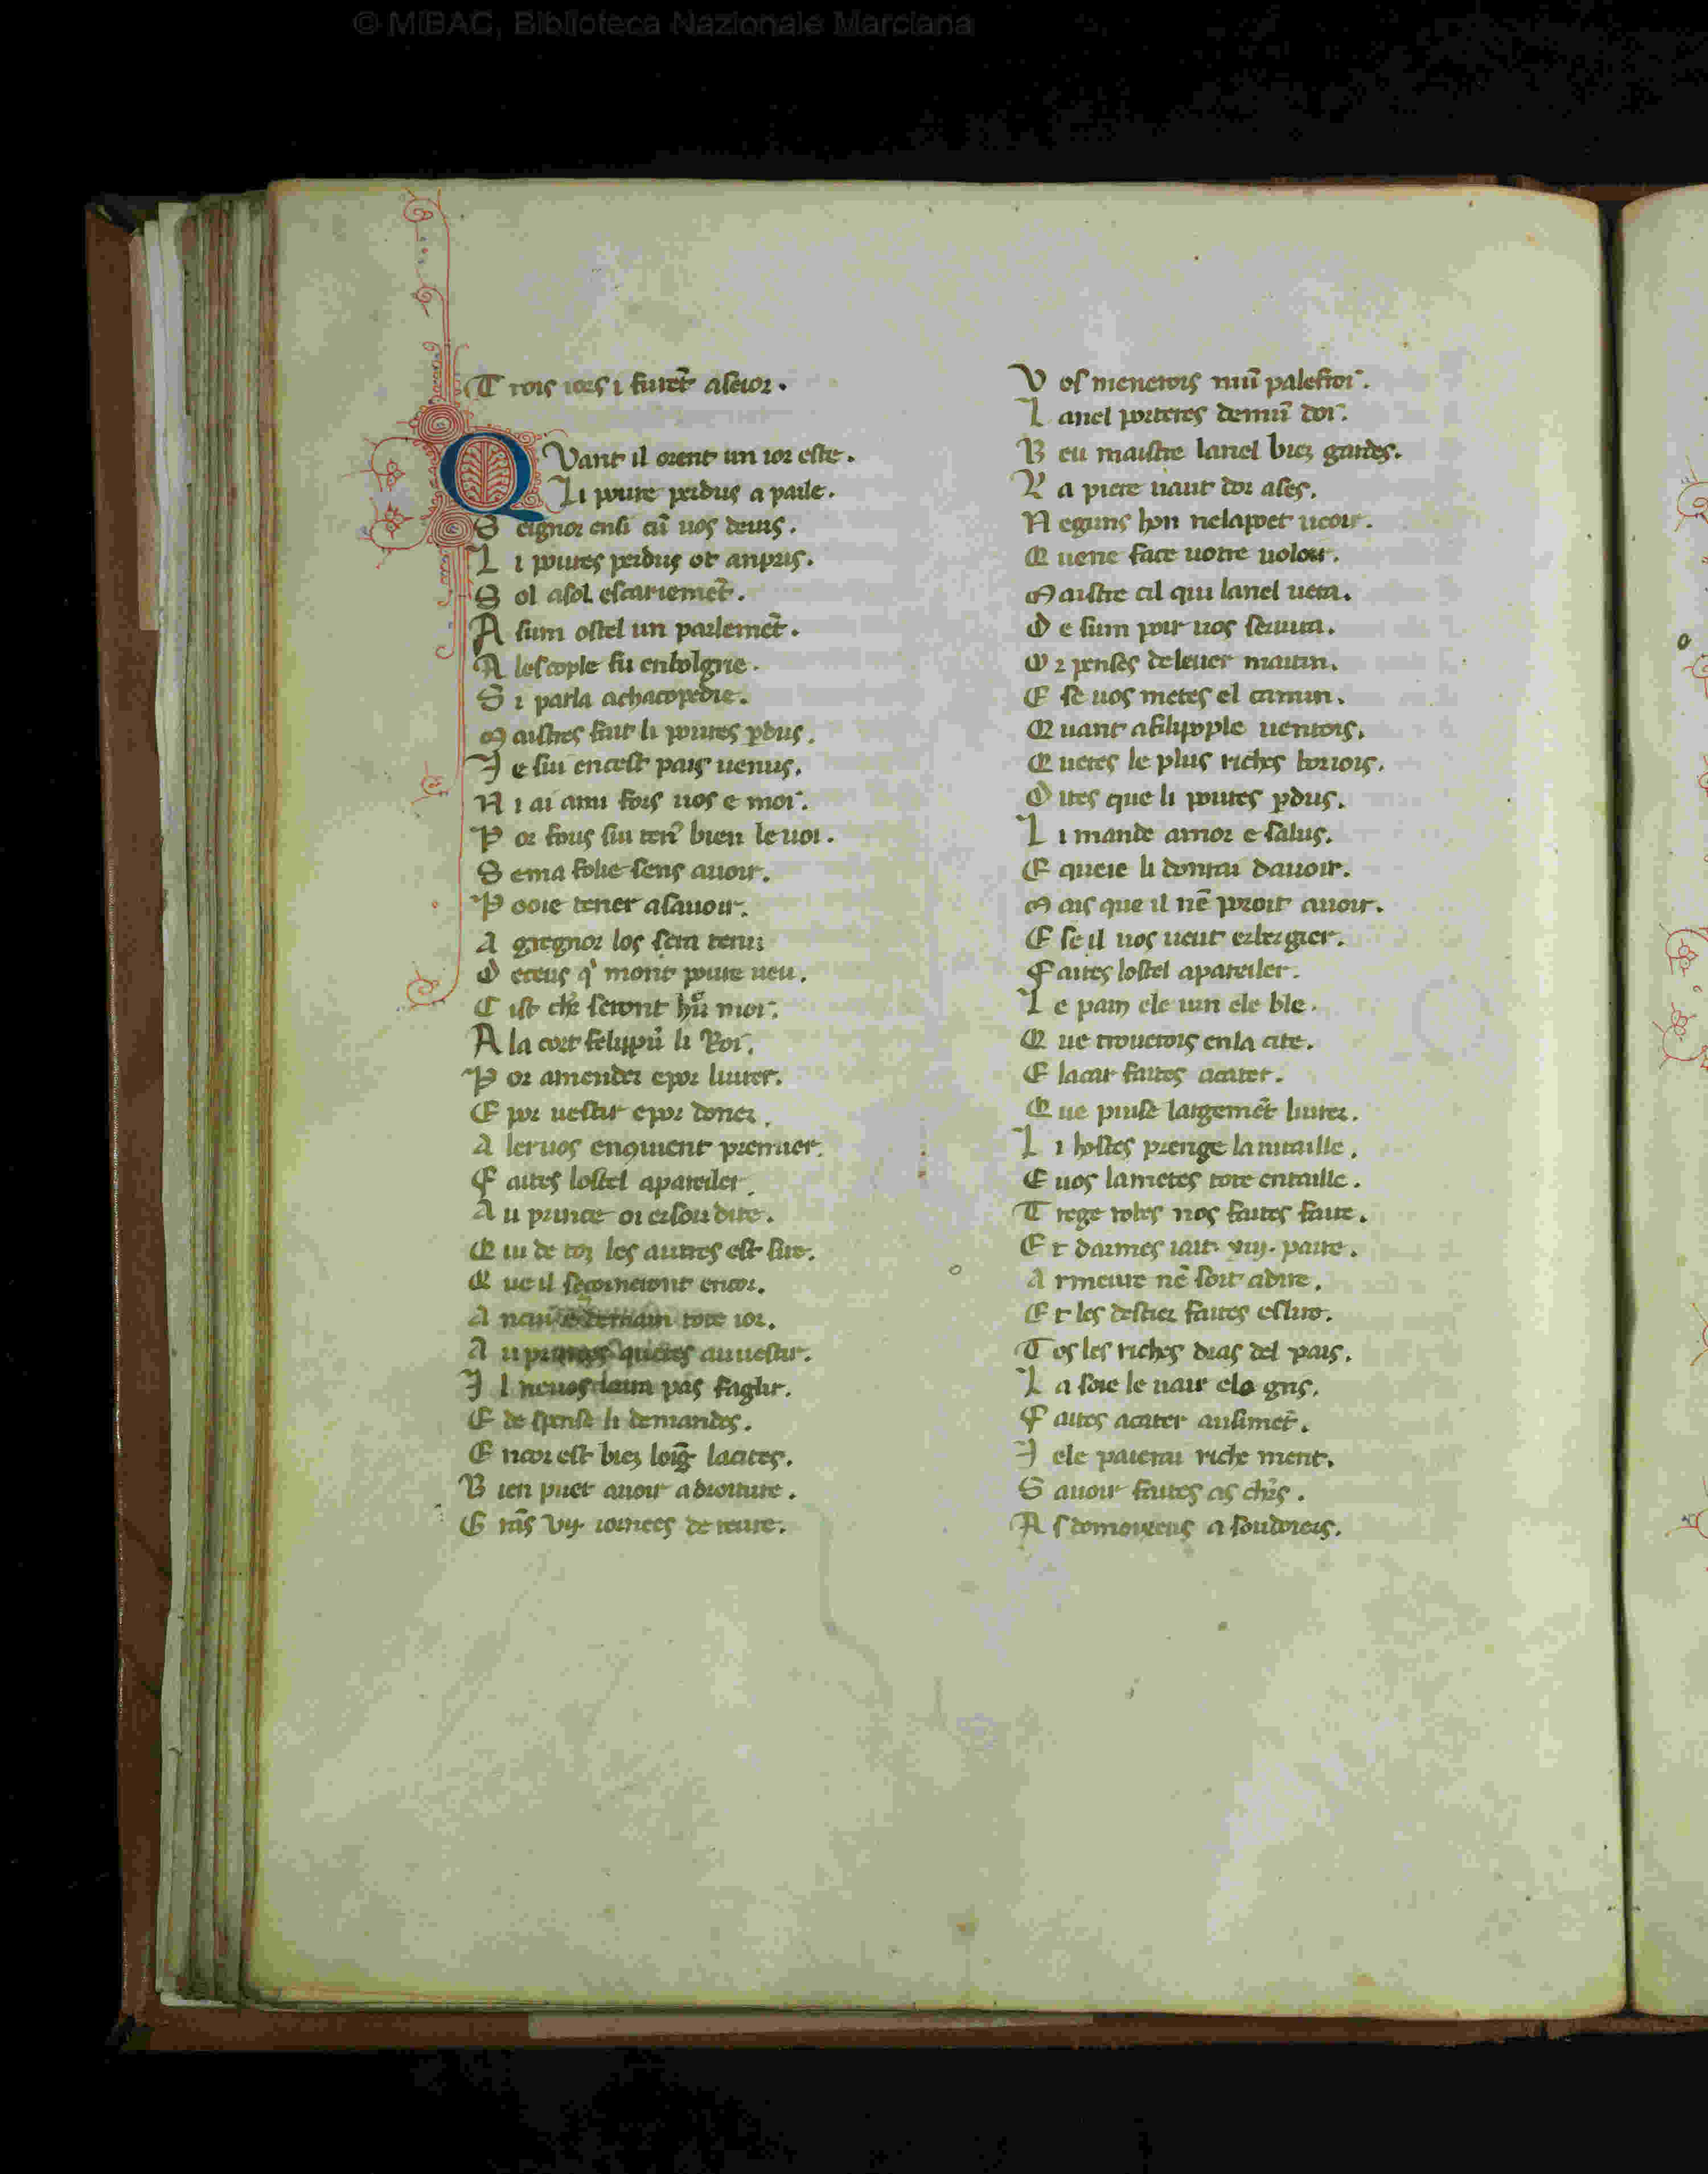 © MiBAC, Biblioteca Nazionale Marciana
T rois iors i furẽt aseior.
Q Vant il orent un ior este.
Li poure perdus a parle.
S eignor ensi cũ uos deuis.
L i poures perdus ot anpris.
S ol asol escariemẽt.
A sum ostel un parlemẽt.
A lescople fu enbolgrie.
S i parla achacopedie.
M aistres fait li poures ꝑdus.
J e sui encest pais uenus.
N i ai amı fors uos e moi.
P or fous sui tenꝰ bien le uoi.
S ema folie sens auoir.
P ooie tener asauoir.
A gregnor los sera tenu
D eceus qͥ mont poure ueu.
C ist chr̃ seront hũ moi.
A la cort felipũ li Roi.
P or amender epor liurer.
E por uestir epor doner.
A ler uos enquient premier.
F aites lostel apareiler.
A u prince oi ersoir dire.
Q ui de toz les autres est sire.
Q ue il secorneront encor.
A tote ior.
A u queres au uestir.
J l neuos laira pas faglir.
E de spense li demandes.
E ncor est biez loĩg lacites.
B ien puet auoir adroiture.
G rãs vij. iornees de terre.
V os menerois mũ palefroi.
L anel porteres demũ doi.
B eu maistre lanel biez gardes.
L a piere uaut dor ases.
N eguns hon nelapoet ueoir.
Q uene face uotre uoloir.
M aistre cil qui lanel uera.
D e sum poir uos seruira.
O r penses deleuer matin.
E se uos metes el camin.
Q uant afilipople uenrois.
Q ueres le plus riches boriois.
D ites que li poures ꝑdus.
L i mande amor e salus.
E queie li donrai dauoir.
M ais que il nẽ poroit auoir.
E se il uos ueut erbergier.
F aites lostel apareiler.
L e pain ele uin ele ble.
Q ue trouerois enla cite.
E lacar faites acater.
Q ue puise largemẽt liurer.
L i hostes prenge lamitaille.
E uos lametes tote entaille.
T rege robes nos faites faire.
E t darmes iait. xiiij. paire.
A rmeure nẽ soit adire.
E t les destier faites eslire.
T os les riches dras del pais.
L a soie le uair elo gris.
F aites acater ausimẽt.
J ele paierai riche ment.
S auoir faites as chr̃s.
A s a soudoiers.